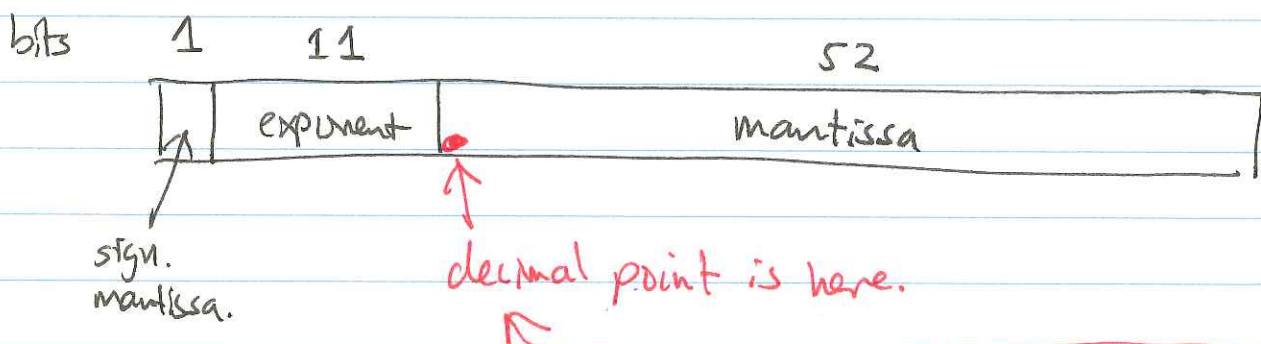 bits 1 11 52
exponent mantissa
sign.
mantissa.
decimal point is here.